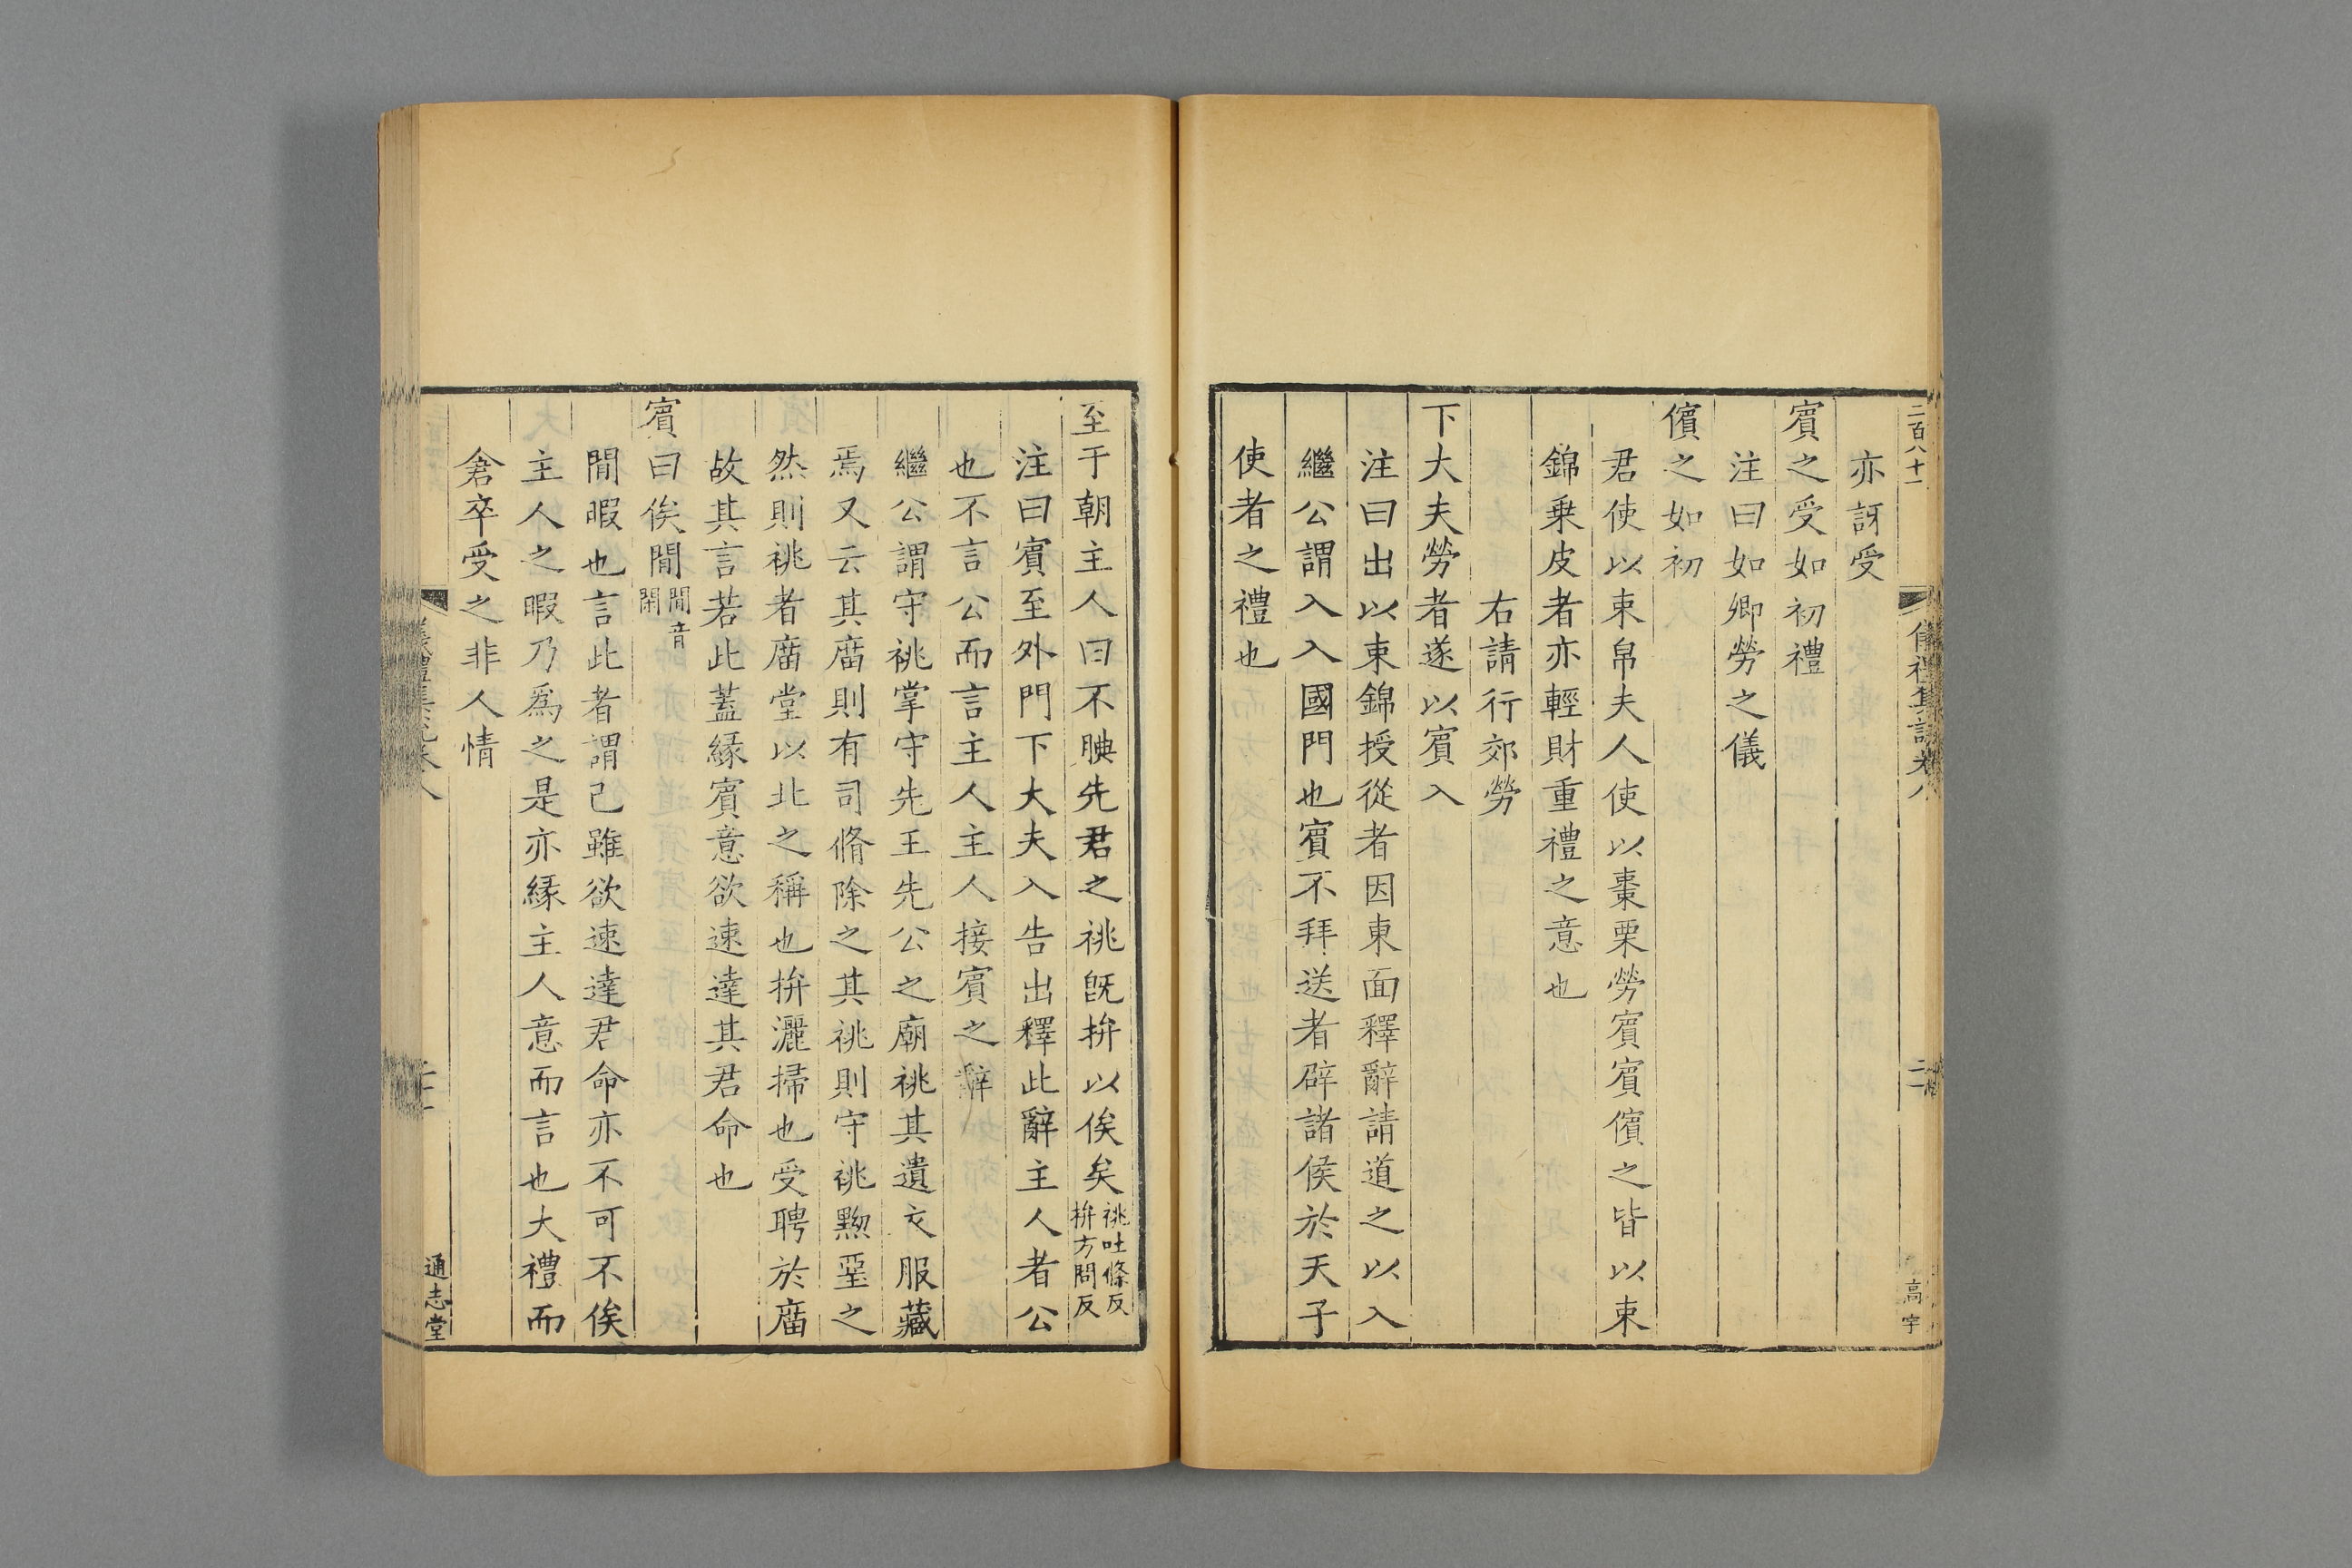 二百八十二
亦訝受
賓之受如初禮
注曰如卿勞之儀
儐之如初
君使以束帛夫人使以棗栗勞賓賓儐之皆以束
錦乗皮者亦輕財重禮之意也
右請行郊勞
下大夫勞者遂以賓入
注曰出以束錦授從者因東面釋辭請道之以入
繼公謂入入國門也賓不拜送者辟諸侯於天子
使者之禮也
高宇
至于朝主人曰不腆先君之祧既拚以俟矣祧吐條反拚方問反
注曰賓至外門下大夫入告出釋此辭主人者公
也不言公而言主人主人接賓之辭
繼公謂守祧掌守先王先公之廟祧其遺衣服藏
焉又云其廟則有司脩除之其祧則守祧黝堊之
然則祧者廟堂以北之稱也拚灑掃也受聘於廟
故其言若此蓋緣賓意欲速達其君命也
賓曰俟閒閒音閑
閒暇也言此者謂己雖欲速達君命亦不可不俟
主人之暇乃爲之是亦緣主人意而言也大禮而
倉卒受之非人情
通志堂